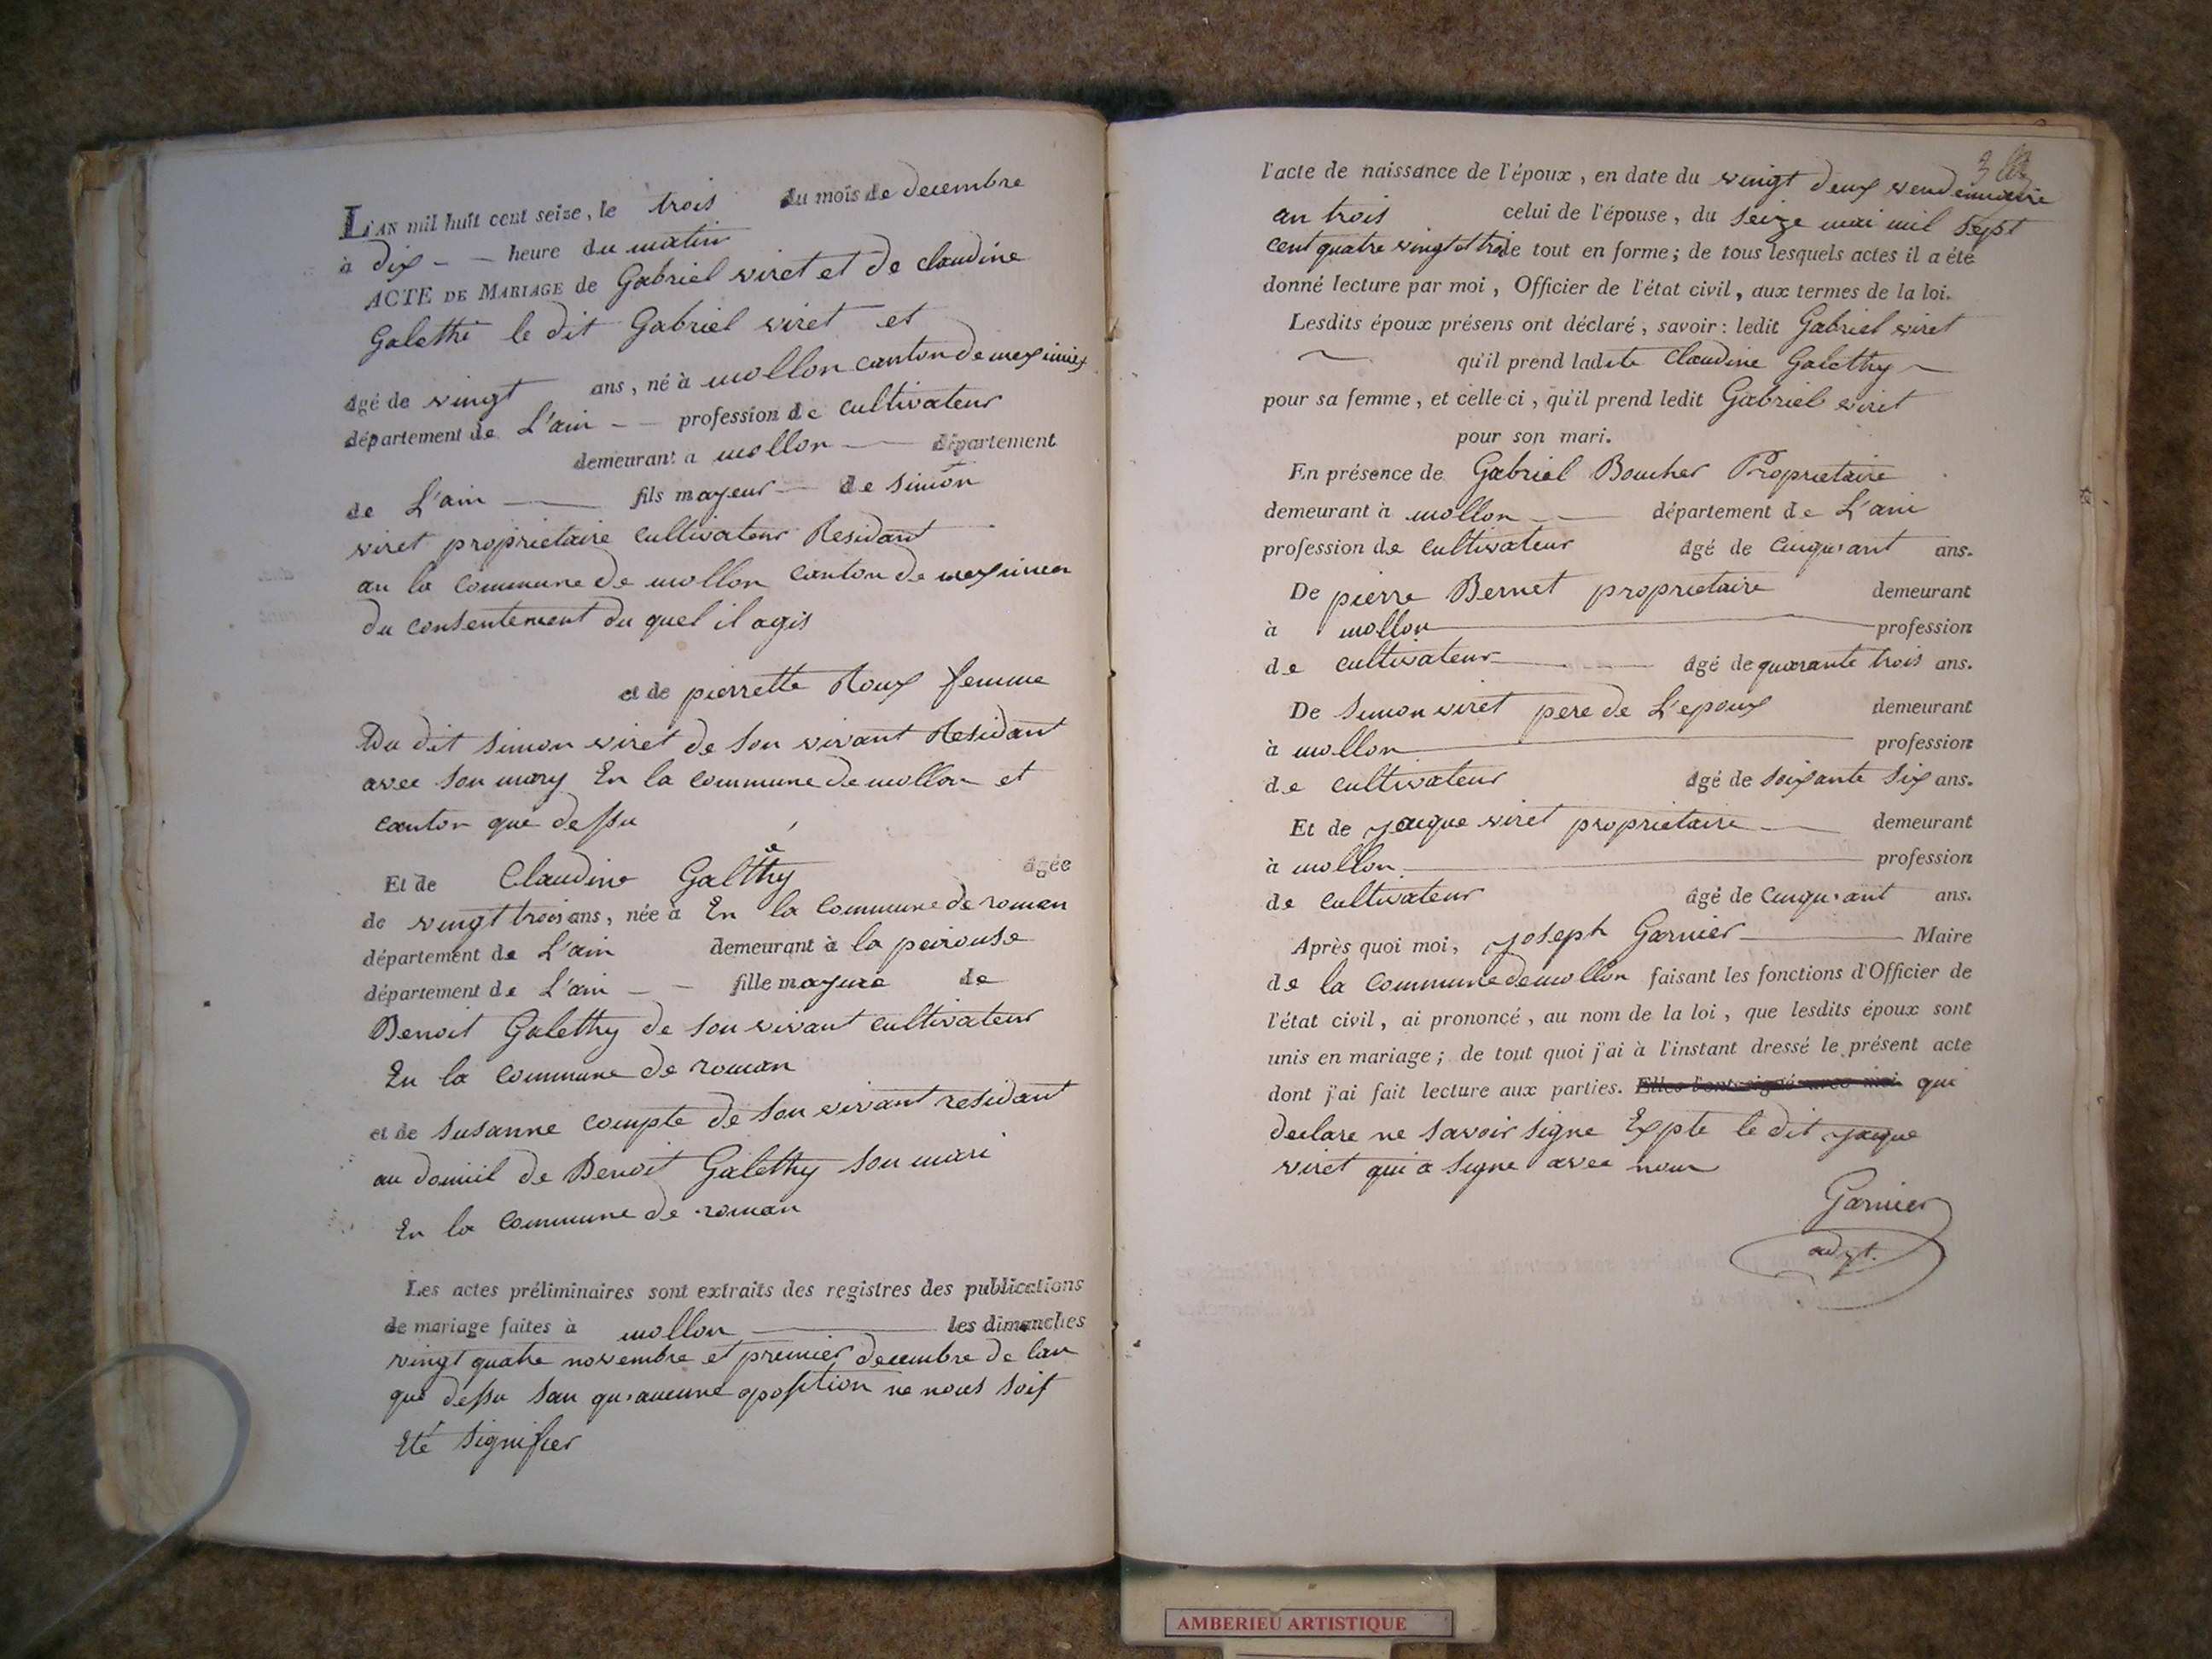 L'AN mil huit cent seize, le trois du mois de decembre
à dix - - heure du matin
ACTE DE MARIAGE de Gabriel viret et de claudine
Galethi le dit Gabriel viret et
âgé de vingt ans, né à mollon canton de meximiex
département de L'ain - - profession de cultivateur
demeurant a mollon - département
de L'ain - fils mayeur - de simon
viret proprietaire cultivateur Residant
an la commune de mollon canton de meximiea
du consentement du quel il agis
et de pierrette Roux femme
Du dit simon viret de son vivant Residant
avec son mary En la commune de mollon et
canton que dessu
Et de Claudine Galethy âgée
de vingt trois ans, née à En la commune de roman
département de L'ain demeurant à la peirouse
département de L'ain - - fille mayure de
Benoit Galethy de son vivant cultivateur
En la commune de roman
et de susanne compte de son vivant residant
au domiil de Benoit Galethy son mari
En la commune de roman
Les actes préliminaires sont extraits des registres des publications
de mariage faites à mollon - les dimanches
vingt quatre novembre et premier decembre de lan
que dessu san qu'aucune oposition ne nous soit
Eté signifier
3
l'acte de naissance de l'époux, en date du vingt deux vendemiaire
an trois celui de l'épouse, du seize mai mil sept
cent quatre vingt et trois le tout en forme; de tous lesquels actes il a été
donné lecture par moi, Officier de l'état civil, aux termes de la loi.
Lesdits époux présens ont déclaré, savoir: ledit Gabriel viret
qu'il prend ladite Claudine Galethy
pour sa femme, et celle ci, qu'il prend ledit Gabriel viret
pour son mari.
En présence de Gabriel Boucher Proprietaire
demeurant à mollon - département de L'ain
profession de cultivateur âgé de Cinqu'ant ans.
De pierre Bernet proprietaire demeurant
à mollon - profession
de cultivateur - âgé de quarante trois ans.
De simon viret pere de L'epoux demeurant
à mollon - profession
de cultivateur âgé de soixante six ans.
Et de jacque viret proprietaire - demeurant
à mollon - profession
de cultivateur âgé de Cinqu'ant ans.
Après quoi moi, joseph Garnier - Maire
de la Commune de mollon faisant les fonctions d'Officier de
l'état civil, ai prononcé, au nom de la loi, que lesdits époux sont
unis en mariage; de tout quoi j'ai à l'instant dressé le présent acte
dont j'ai fait lecture aux parties. Elles l'ont signé avec moi qui
declare ne savoir signe Expte le dit jacque
viret qui a signe avec nous
Garnier
adjt.
AMBERIEU ARTISTIQUE